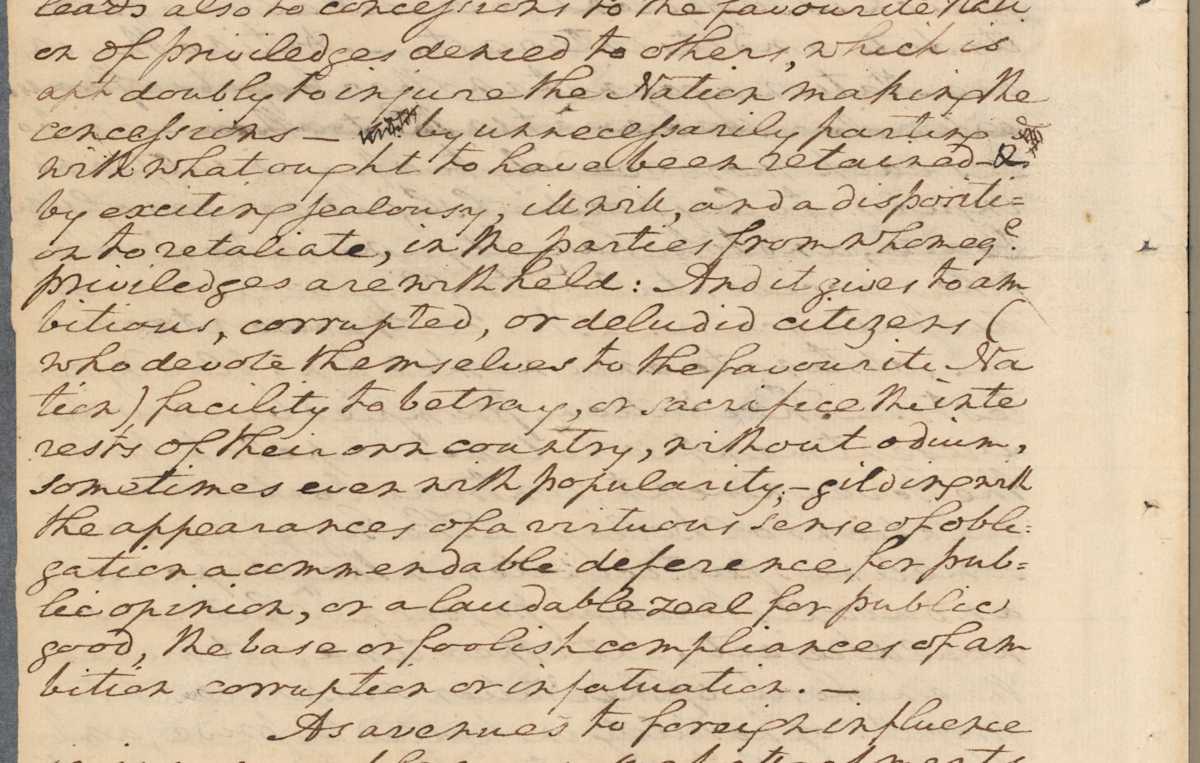 leads also to concessions to the favourite Nati
on of priviledges denied to others, which is
apt doubly to injure the Nation making the
concessions — by unnecessarily parting
with what ought to have been retained — &
by exciting jealousy, ill will, and a dispositi=
on to retaliate, in the parties from whom eql.
priviledges are withheld: And it gives to am
bitious, corrupted, or deludid citizens (
who devote themselves to the favourite Na
tion) facility to betray, or sacrifice the inte
rests of their own country, without odium,
sometimes even with popularity; – gilding with
the appearances of a virtuous sense of obli=
gation a commendable deference for pub=
lic opinion, or a laudable zeal for public
good, the base or foolish compliances of am
bition corruption or infatuation. —
As avenues to foreign influence
in attachments